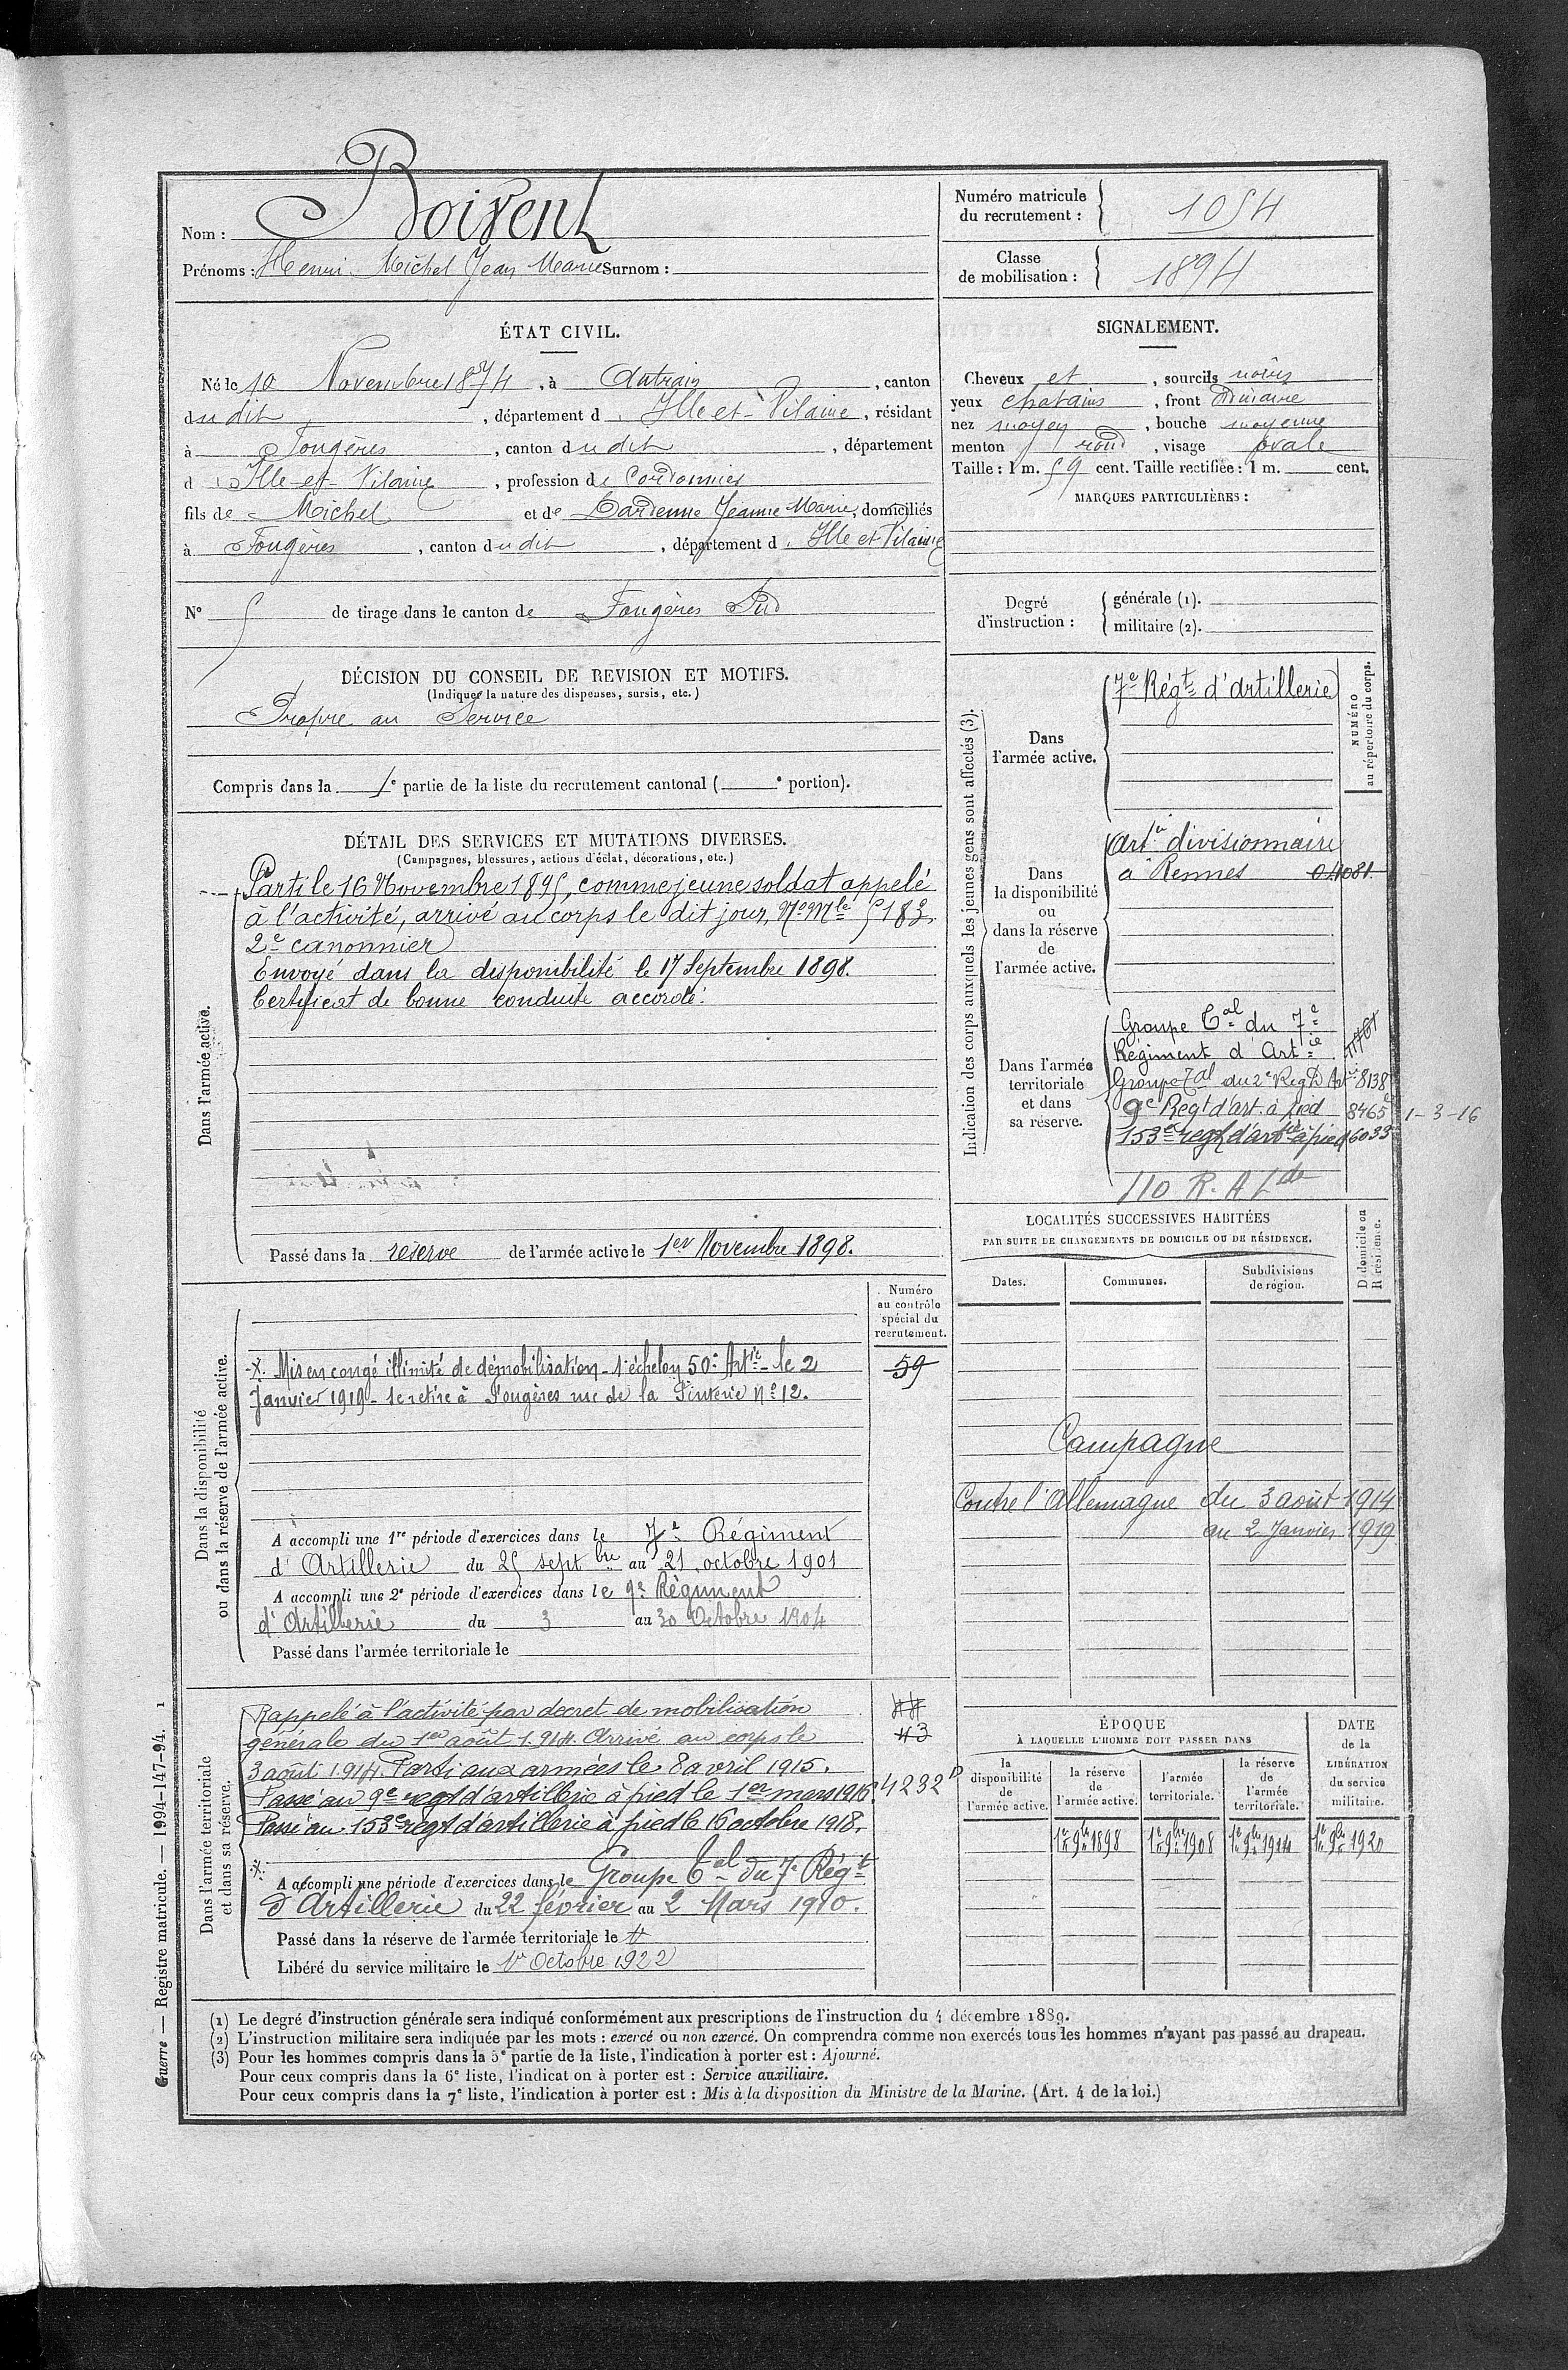 Nom : Boivent
Prénoms : Henri Michel Jean Marie Surnom :
Numéro matricule du recrutement : 1054
Classe de mobilisation : 1894
ÉTAT CIVIL.
Né le 10 Novembre 1874, à Antrain, canton
du dit, département d Ille-et-Vilaine, résidant
à Fougères, canton du dit, département
d Ille-et-Vilaine, profession de Cordonnier
fils de Michel et de Lardenne Jeanne Marie, domiciliés
à Fougères, canton du dit, département d Ille et Vilaine
N° 5 de tirage dans le canton de Fougères Sud
SIGNALEMENT.
Cheveux et, sourcils noirs
yeux chatains, front ordinaire
nez moyen, bouche moyenne
menton rond, visage ovale
Taille : 1 m. 59 cent. Taille rectifiée : 1 m. cent.
MARQUES PARTICULIÈRES :
Degré d'instruction :
générale (1).
militaire (2).
DÉCISION DU CONSEIL DE REVISION ET MOTIFS.
(Indiquer la nature des dispenses, sursis, etc.)
Propre au Service
Compris dans la 1e partie de la liste du recrutement cantonal ( e portion).
DÉTAIL DES SERVICES ET MUTATIONS DIVERSES.
(Campagnes, blessures, actions d'éclat, décorations, etc.)
Dans l'armée active.
Parti le 16 Novembre 1895, comme jeune soldat appelé
à l'activité, arrivé au corps le dit jour, No Mle 5183.
2e canonnier
Envoyé dans la disponibilité le 17 Septembre 1898.
Certificat de bonne conduite accordé.
Passé dans la réserve de l'armée active le 1er Novembre 1898.
Indication des corps auxquels les jeunes gens sont affectés (3).
NUMÉRO au répertoire du corps.
Dans l'armée active.
7e Régt d'artillerie
Dans la disponibilité ou dans la réserve de l'armée active.
Artie divisionnaire
à Rennes 04081
Dans l'armée territoriale et dans sa réserve.
Groupe Tal du 7e
Régiment d'Artie 11761
Groupe Tal du 2e Regt d'Art 8138
9e Regt d'art. à pied 8465 1-3-16
153e regt d'artie à pied 6033
110 R. A Lde
Dans la disponibilité ou dans la réserve de l'armée active.
Numéro au contrôle spécial du recrutement.
59
Mis en congé illimité de démobilisation 1e échelon 50e Artie le 2
Janvier 1919 - se retire à Fougères rue de la Pinterie No 12.
A accompli une 1re période d'exercices dans le 7e Régiment
d'Artillerie du 25 septbre au 21 octobre 1901
A accompli une 2e période d'exercices dans le 9e Régiment
d'Artillerie du 3 au 30 Octobre 1904
Passé dans l'armée territoriale le
LOCALITÉS SUCCESSIVES HABITÉES
PAR SUITE DE CHANGEMENTS DE DOMICILE OU DE RÉSIDENCE.
Dates. Communes. Subdivisions de région. D domicile ou R résidence.
Campagne
Contre l'Allemagne du 3 août 1914
au 2 Janvier 1919
Dans l'armée territoriale et dans sa réserve.
Rappelé à l'activité par decret de mobilisation
générale du 1er août 1914. Arrivé au corps le
3 août 1914. Parti aux armées le 8 avril 1915.
Passé au 9e regt d'artillerie à pied le 1er mars 1916.
Passé au 153e regt d'artillerie à pied le 16 octobre 1918.
43
4232
A accompli une période d'exercices dans le Groupe Tal du 7e Régt
d'Artillerie du 22 février au 2 Mars 1910.
Passé dans la réserve de l'armée territoriale le
Libéré du service militaire le 1er Octobre 1922
ÉPOQUE
À LAQUELLE L'HOMME DOIT PASSER DANS
la disponibilité de l'armée active.
la réserve de l'armée active.
l'armée territoriale.
la réserve de l'armée territoriale.
DATE de la LIBÉRATION du service militaire.
1er 9bre 1898 1er 9bre 1908 1er 9bre 1914 1er 9bre 1920
Guerre — Registre matricule. — 1094-147-94. 1
(1) Le degré d'instruction générale sera indiqué conformément aux prescriptions de l'instruction du 4 décembre 1889.
(2) L'instruction militaire sera indiquée par les mots : exercé ou non exercé. On comprendra comme non exercés tous les hommes n'ayant pas passé au drapeau.
(3) Pour les hommes compris dans la 5e partie de la liste, l'indication à porter est : Ajourné.
Pour ceux compris dans la 6e liste, l'indicat on à porter est : Service auxiliaire.
Pour ceux compris dans la 7e liste, l'indication à porter est : Mis à la disposition du Ministre de la Marine. (Art. 4 de la loi.)